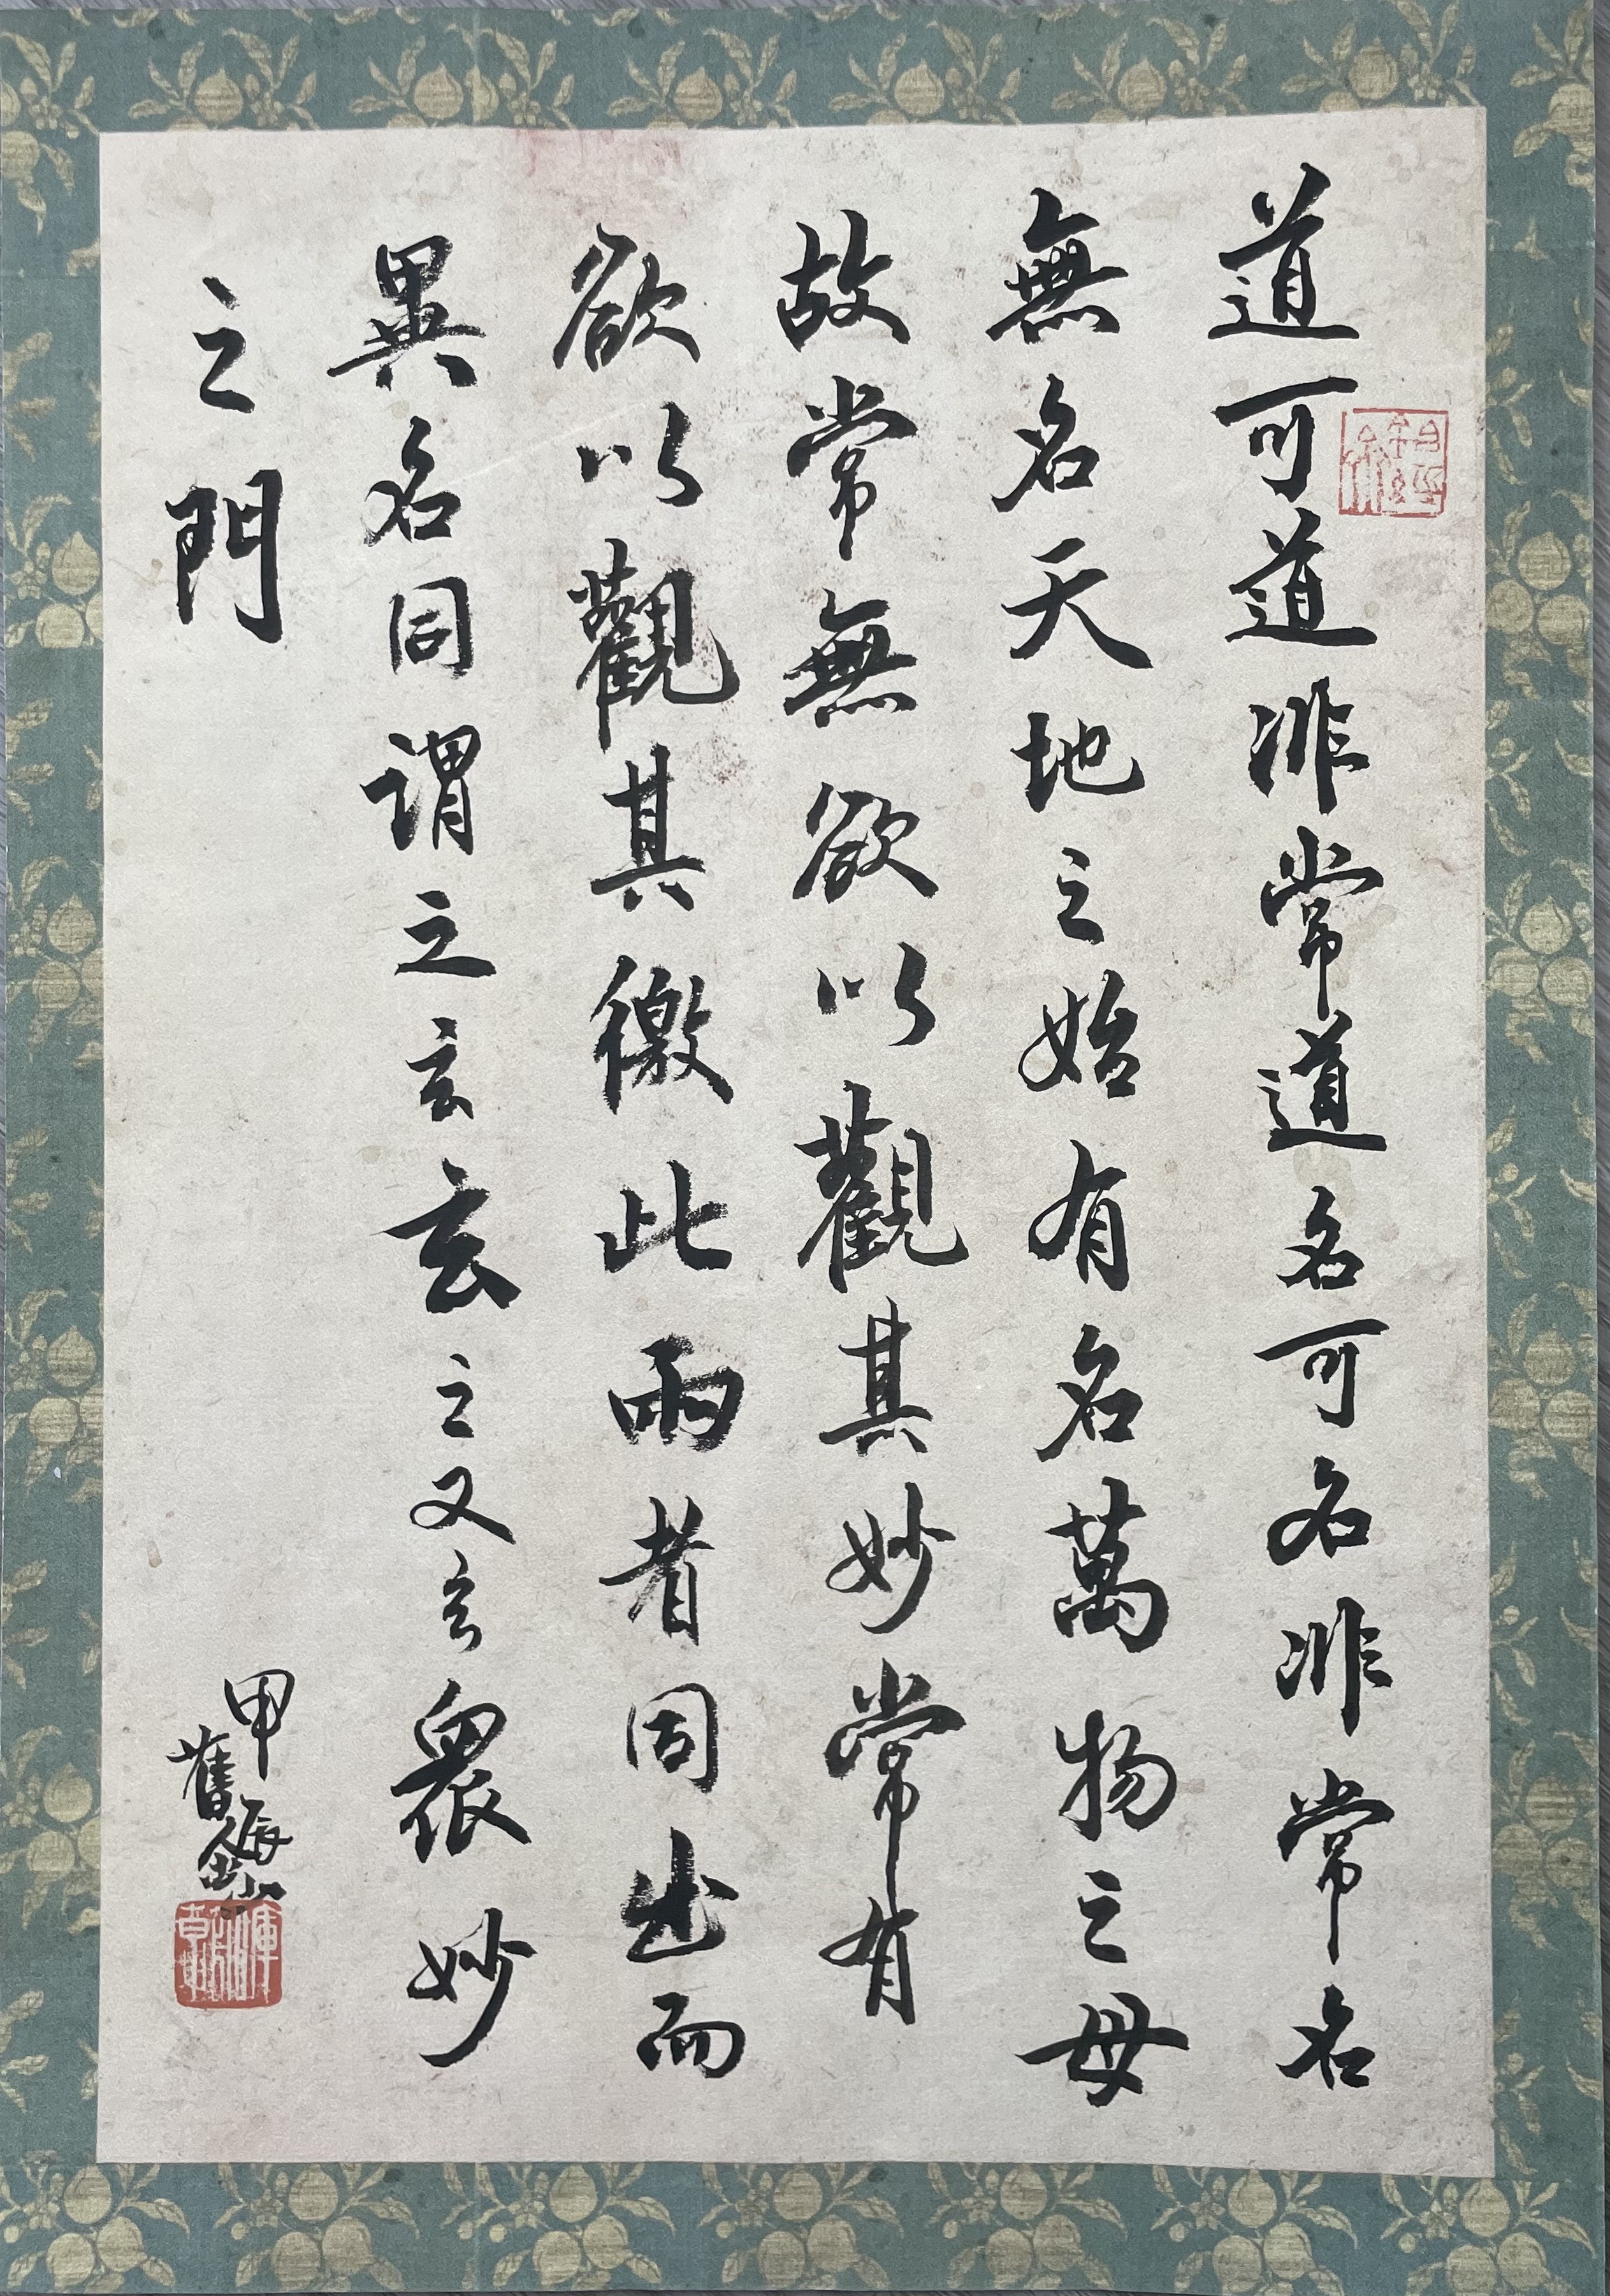 道可道非常道名可名非常名
無名天地之始有名萬物之母
故常無欲以觀其妙常有
欲以觀其徼此兩者同出而
異名同謂之玄玄之又玄衆妙
之門
甲辰